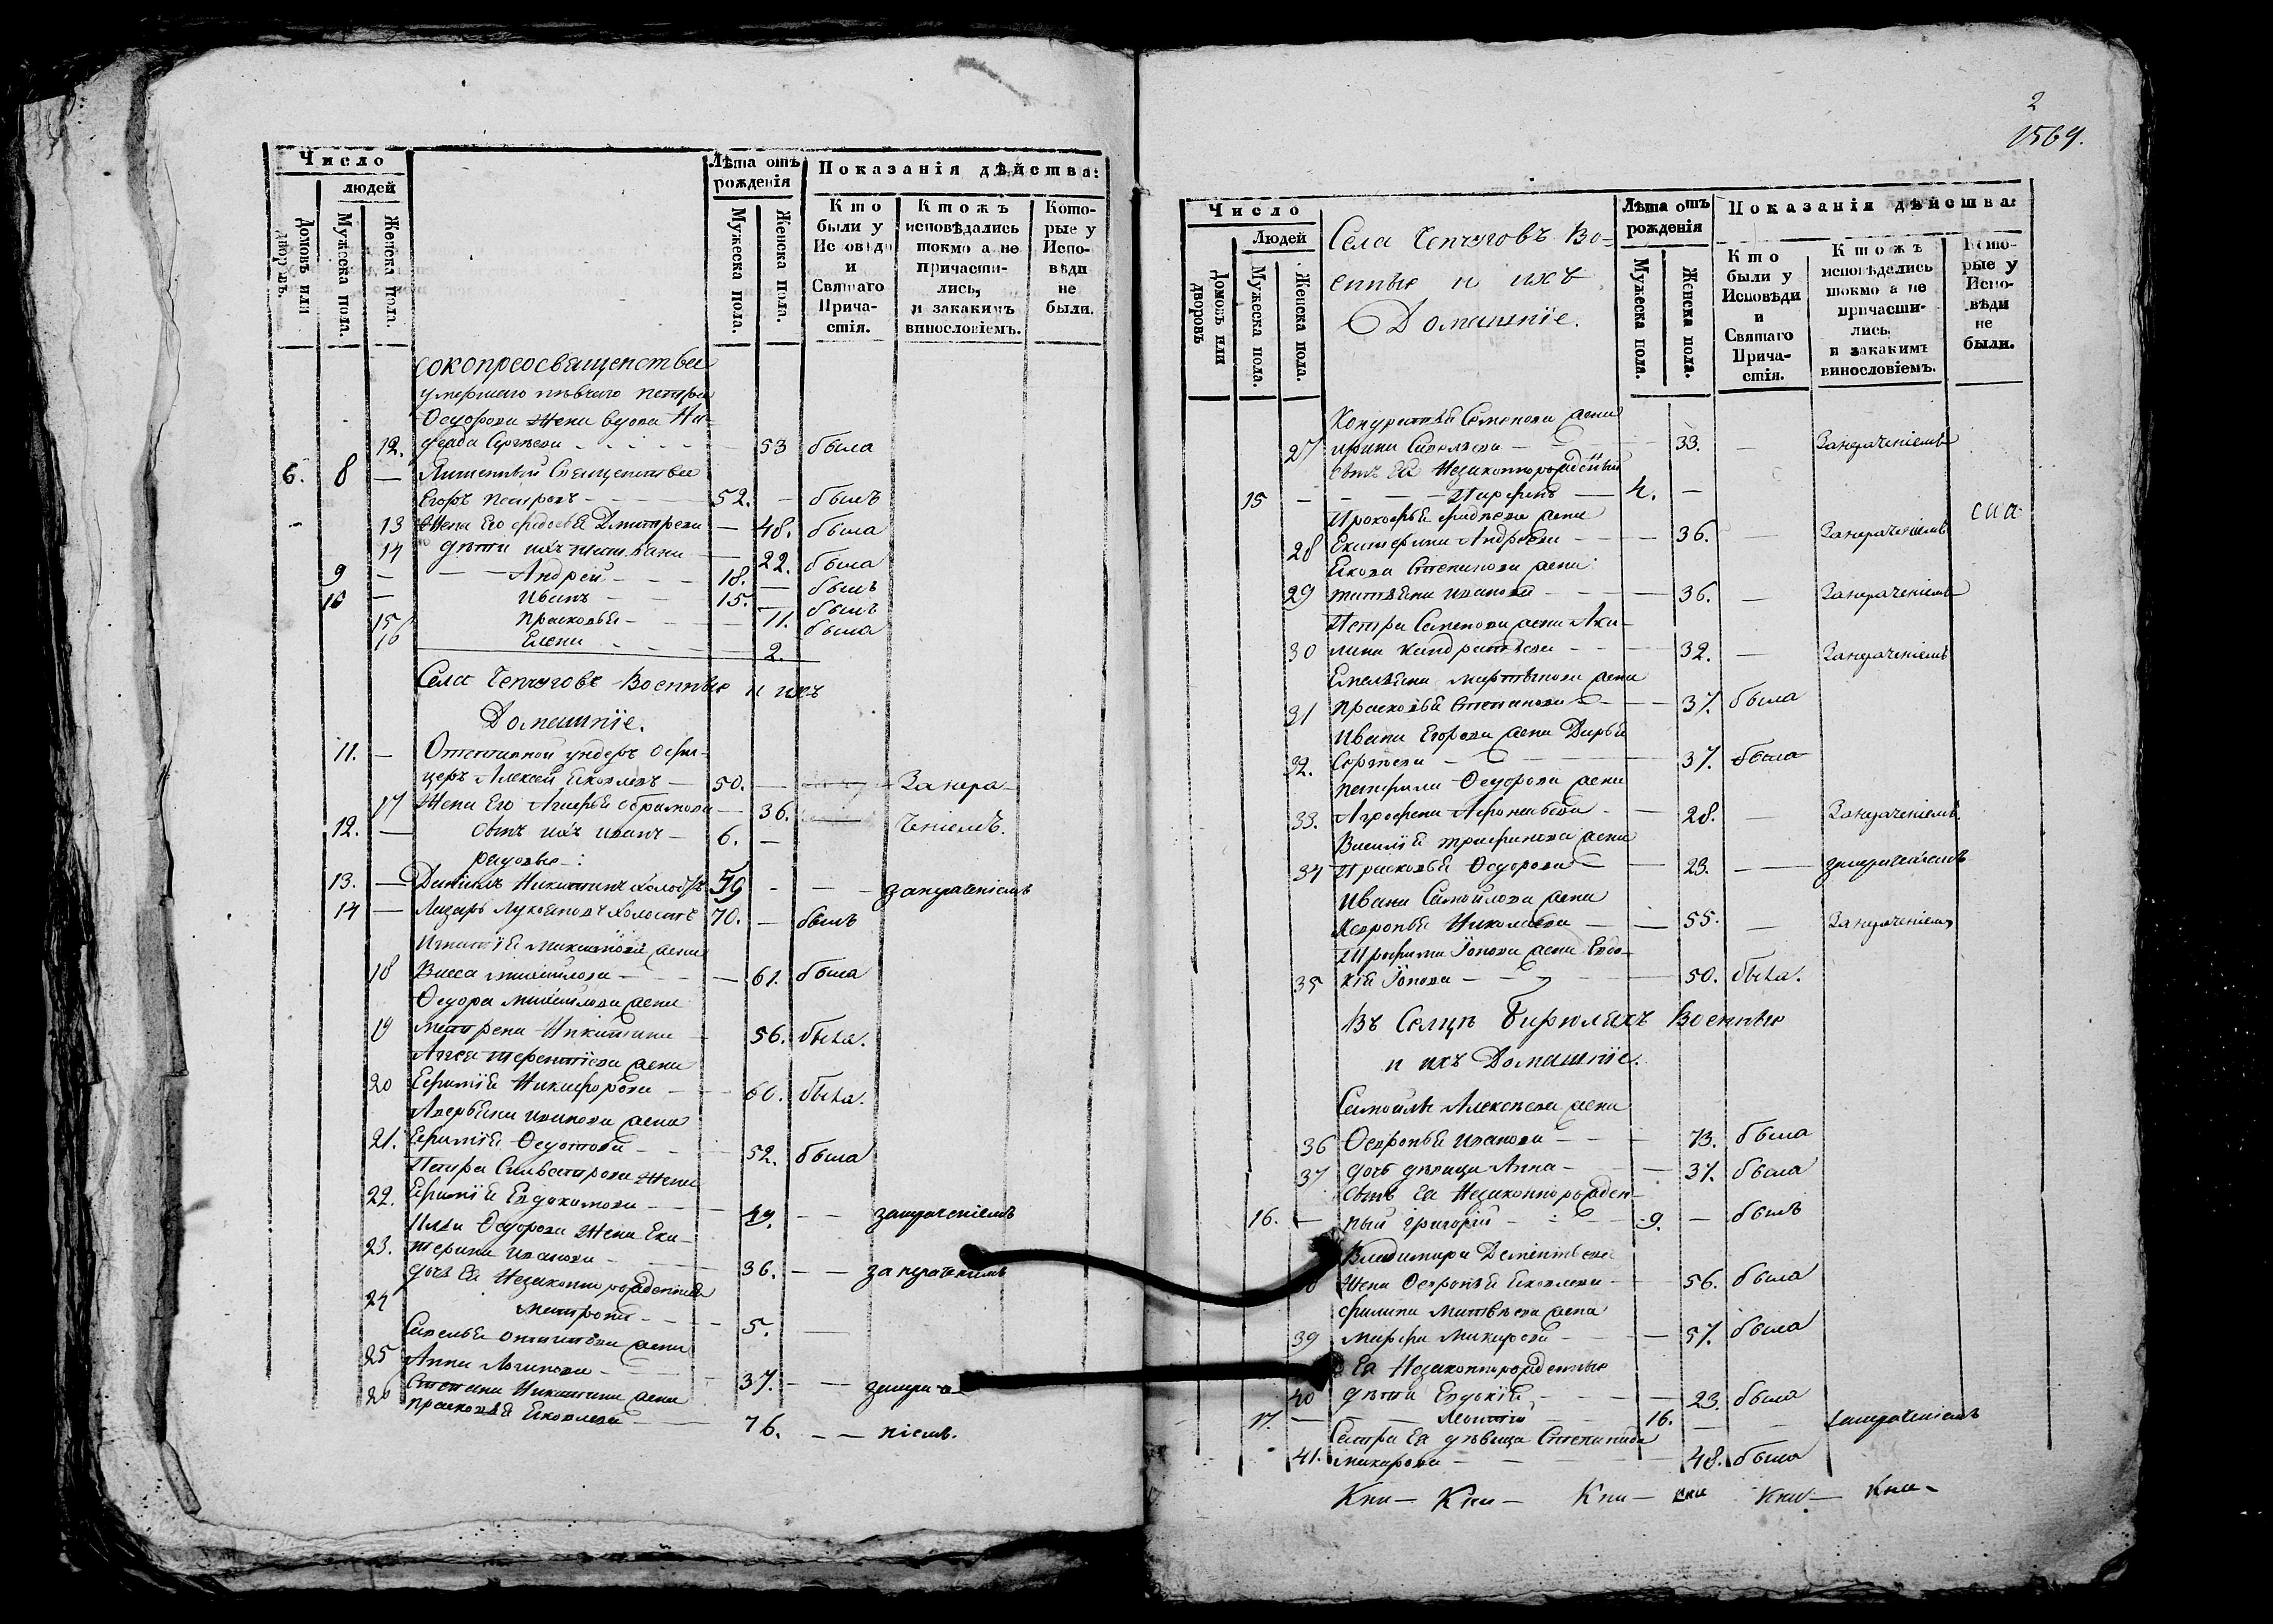 Число
людей
Домовъ или дворовъ.
Мужеска пола.
Женска пола.
Лѣта отъ рожденія
Мужеска пола.
Женска пола.
Показанія дѣйства:
Кто были у Исповѣди и Святаго Прича-стія.
Ктожъ исповѣдались токмо а не причасти-лись, и закакимъ винословіемъ.
Кото-рые у Испо-вѣди не были.
сокопреосвященства
умершаго пѣвчаго Петра
Ѳедорова жена вдова На-
12. дежда Сергѣева 53 была
6. 8 Священства
Егоръ Петровъ 52. былъ
13 Жена Его Ѳедосья Дмитрева 48. была
14 дѣти ихъ Татьяна 22. была
9 Андрей 18. былъ
10 Иванъ 15. былъ
15 Прасковья 11. была
16 Елена 2.
Села Чепчуговъ Военные и ихъ
Домашніе.
11. Отставной ундеръ Офи-
церъ Алексей Яковлевъ 50. Занера-
17 Жена Его Агафья Абрамова 36.
12. сынъ ихъ Иванъ 6. ченіемъ.
рядовые:
13. Данилъ Никитинъ холостъ 59 занераченіемъ
14 Лазарь Лукояновъ холостъ 70. былъ
Игнатья Максимова жена
18 Васса Михайлова 61. была
Ѳедора Михайлова жена
19 Матрена Никитина 56. была.
Агея Терентіева жена
20 Ефимія Никифорова 60. была.
Аверьяна Иванова жена
21. Ефимія Ѳедотова 52. была
Петра Сильвестрова жена
22. Ефимія Евдокимова 49. занераченіемъ
Ильи Ѳедорова Жена Ека-
23. терина Иванова 36. занераченіемъ
дочь Ея Незаконнорожденная
24 Матрона 5.
Савелья жена
25 Анна Логинова 37. занера че
Степана Никитина жена
26 Прасковья Яковлева 76. ніемъ.
2
1569.
Число
Людей
Домовъ или дворовъ
Мужеска пола.
Женска пола.
Села Чепчуговъ Во-
енные и ихъ
Домашніе.
Лѣта отъ рожденія
Мужеска пола.
Женска пола.
Показанія дѣйства:
Кто были у Исповѣди и Святаго Прича-стія.
Ктожъ исповѣдались токмо а не причасти-лись, и закакимъ винословіемъ.
Кото-рые у Испо-вѣди не были.
Кондратья Семенова жена
27 Ирина Савельева 33. Занераченіемъ
сынъ Ея Незаконнорожденный
15 Парфенъ 4.
Прокофья Фадѣева жена
28 Екатерина Андреева 36. Занераченіемъ
Якова Степанова жена
29 Татьяна Иванова 36. Занераченіемъ
Петра Семенова жена Аку-
30 лина Кандратьева 32. Занераченіемъ
Емельяна Мартынова жена
31 Прасковья Степанова 37. была
Ивана Егорова жена Дарья
32. Сергѣева 37. была
Ѳедорова жена
33. Агрофена Афонасьева 28. Занераченіемъ.
Василья Трафимова жена
34 Прасковья Ѳедорова 23. занераченіемъ
Ивана Самойлова жена
Николаева 55. Занераченіемъ
Трафима Іонова жена Евдо-
35 кія Іонова 50. была.
Въ Сельцѣ Бирюляхъ Военные
и ихъ Домашніе.
Самойлы Алексѣева жена
36 Ѳевронья Иванова 73. была
37 дочь дѣвица Анна 37. была
сынъ Ея Незаконнорожден-
16. ный Григорій 9. былъ
Владимира Дементьева
жена Ѳевронья Яковлева 56. была
Филипа Матвѣева жена
39 Марфа Макарова 57. была
Ея Незаконнорожденные
40 дѣти Евдокія 23. была
17. Леонтій 16. занераченіемъ
Сестра Ея дѣвица Степанида
41. Макарова 48. была